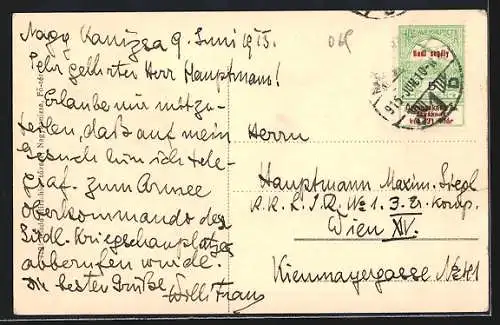 Nagy Kanizsa 9. Juni 1915.
Sehr geehrter Herr Hauptmann!
Erlaube mir mitzu-
teilen, daß auf mein
Gesuch hin ich tele-
graf. zum Armee
Oberkommando des
Südl. Kriegschauplatzes
abberufen wurde.
Die besten Grüße Willi Franz
069
Hadi segély
915 JUN 10
Herrn
Hauptmann Maxim.
K. K. L. I. R. No 1. 3. E. Komp.
Wien XV.
Kienmayergasse No 41